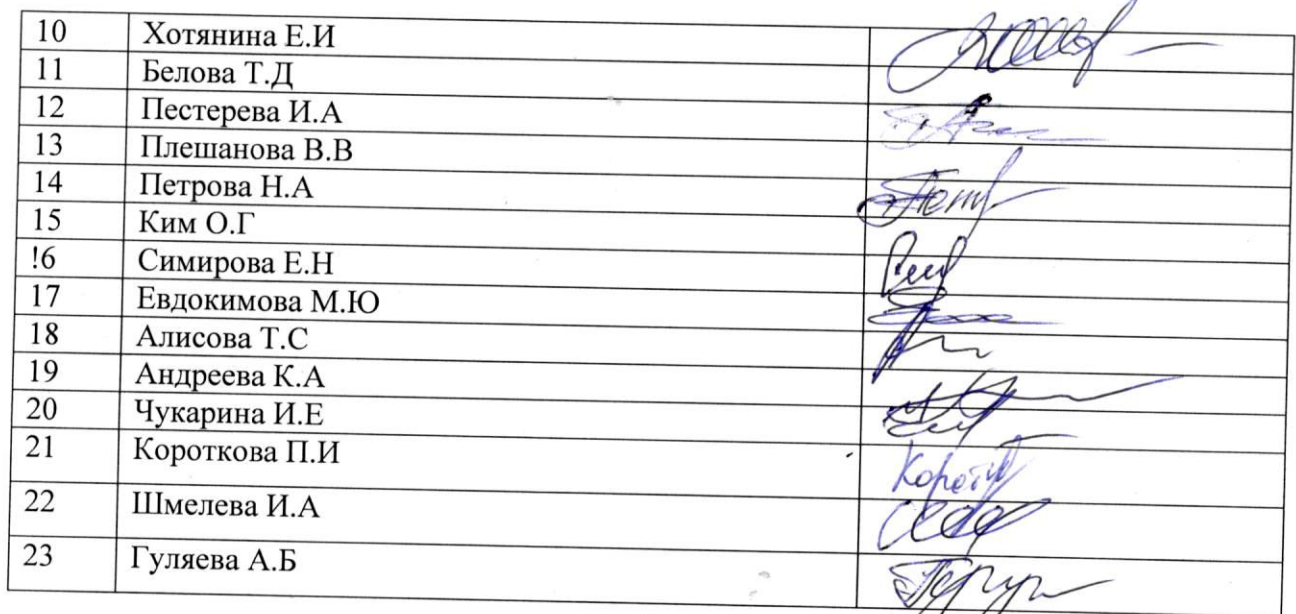 10 Хотянина Е.И
11 Белова Т.Д
12 Пестерева И.А
13 Плешанова В.В
14 Петрова Н.А
15 Ким О.Г
!6 Симирова Е.Н
17 Евдокимова М.Ю
18 Алисова Т.С
19 Андреева К.А
20 Чукарина И.Е
21 Короткова П.И
22 Шмелева И.А
23 Гуляева А.Б